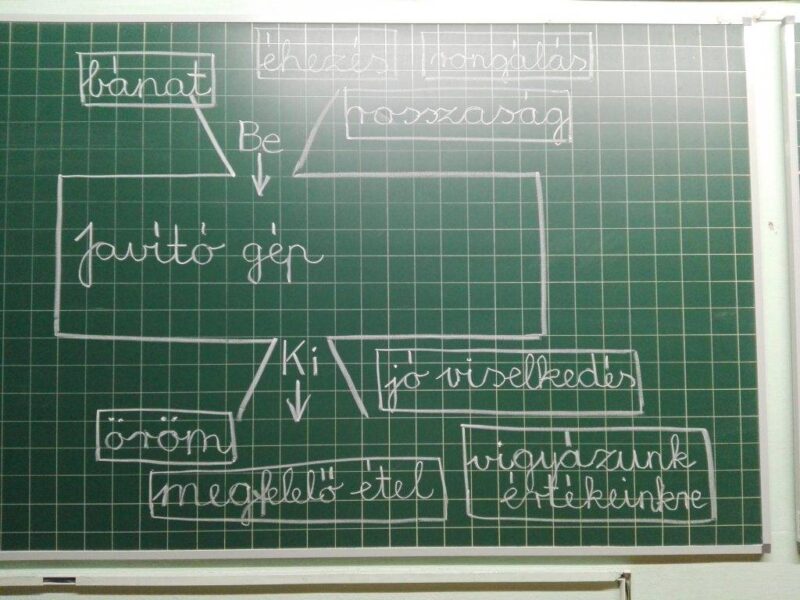 bánat
éhezés
rongálás
rosszaság
Be
Javító gép
Ki
jó viselkedés
öröm
megfelelő étel
vigyázunk
értékeinkre